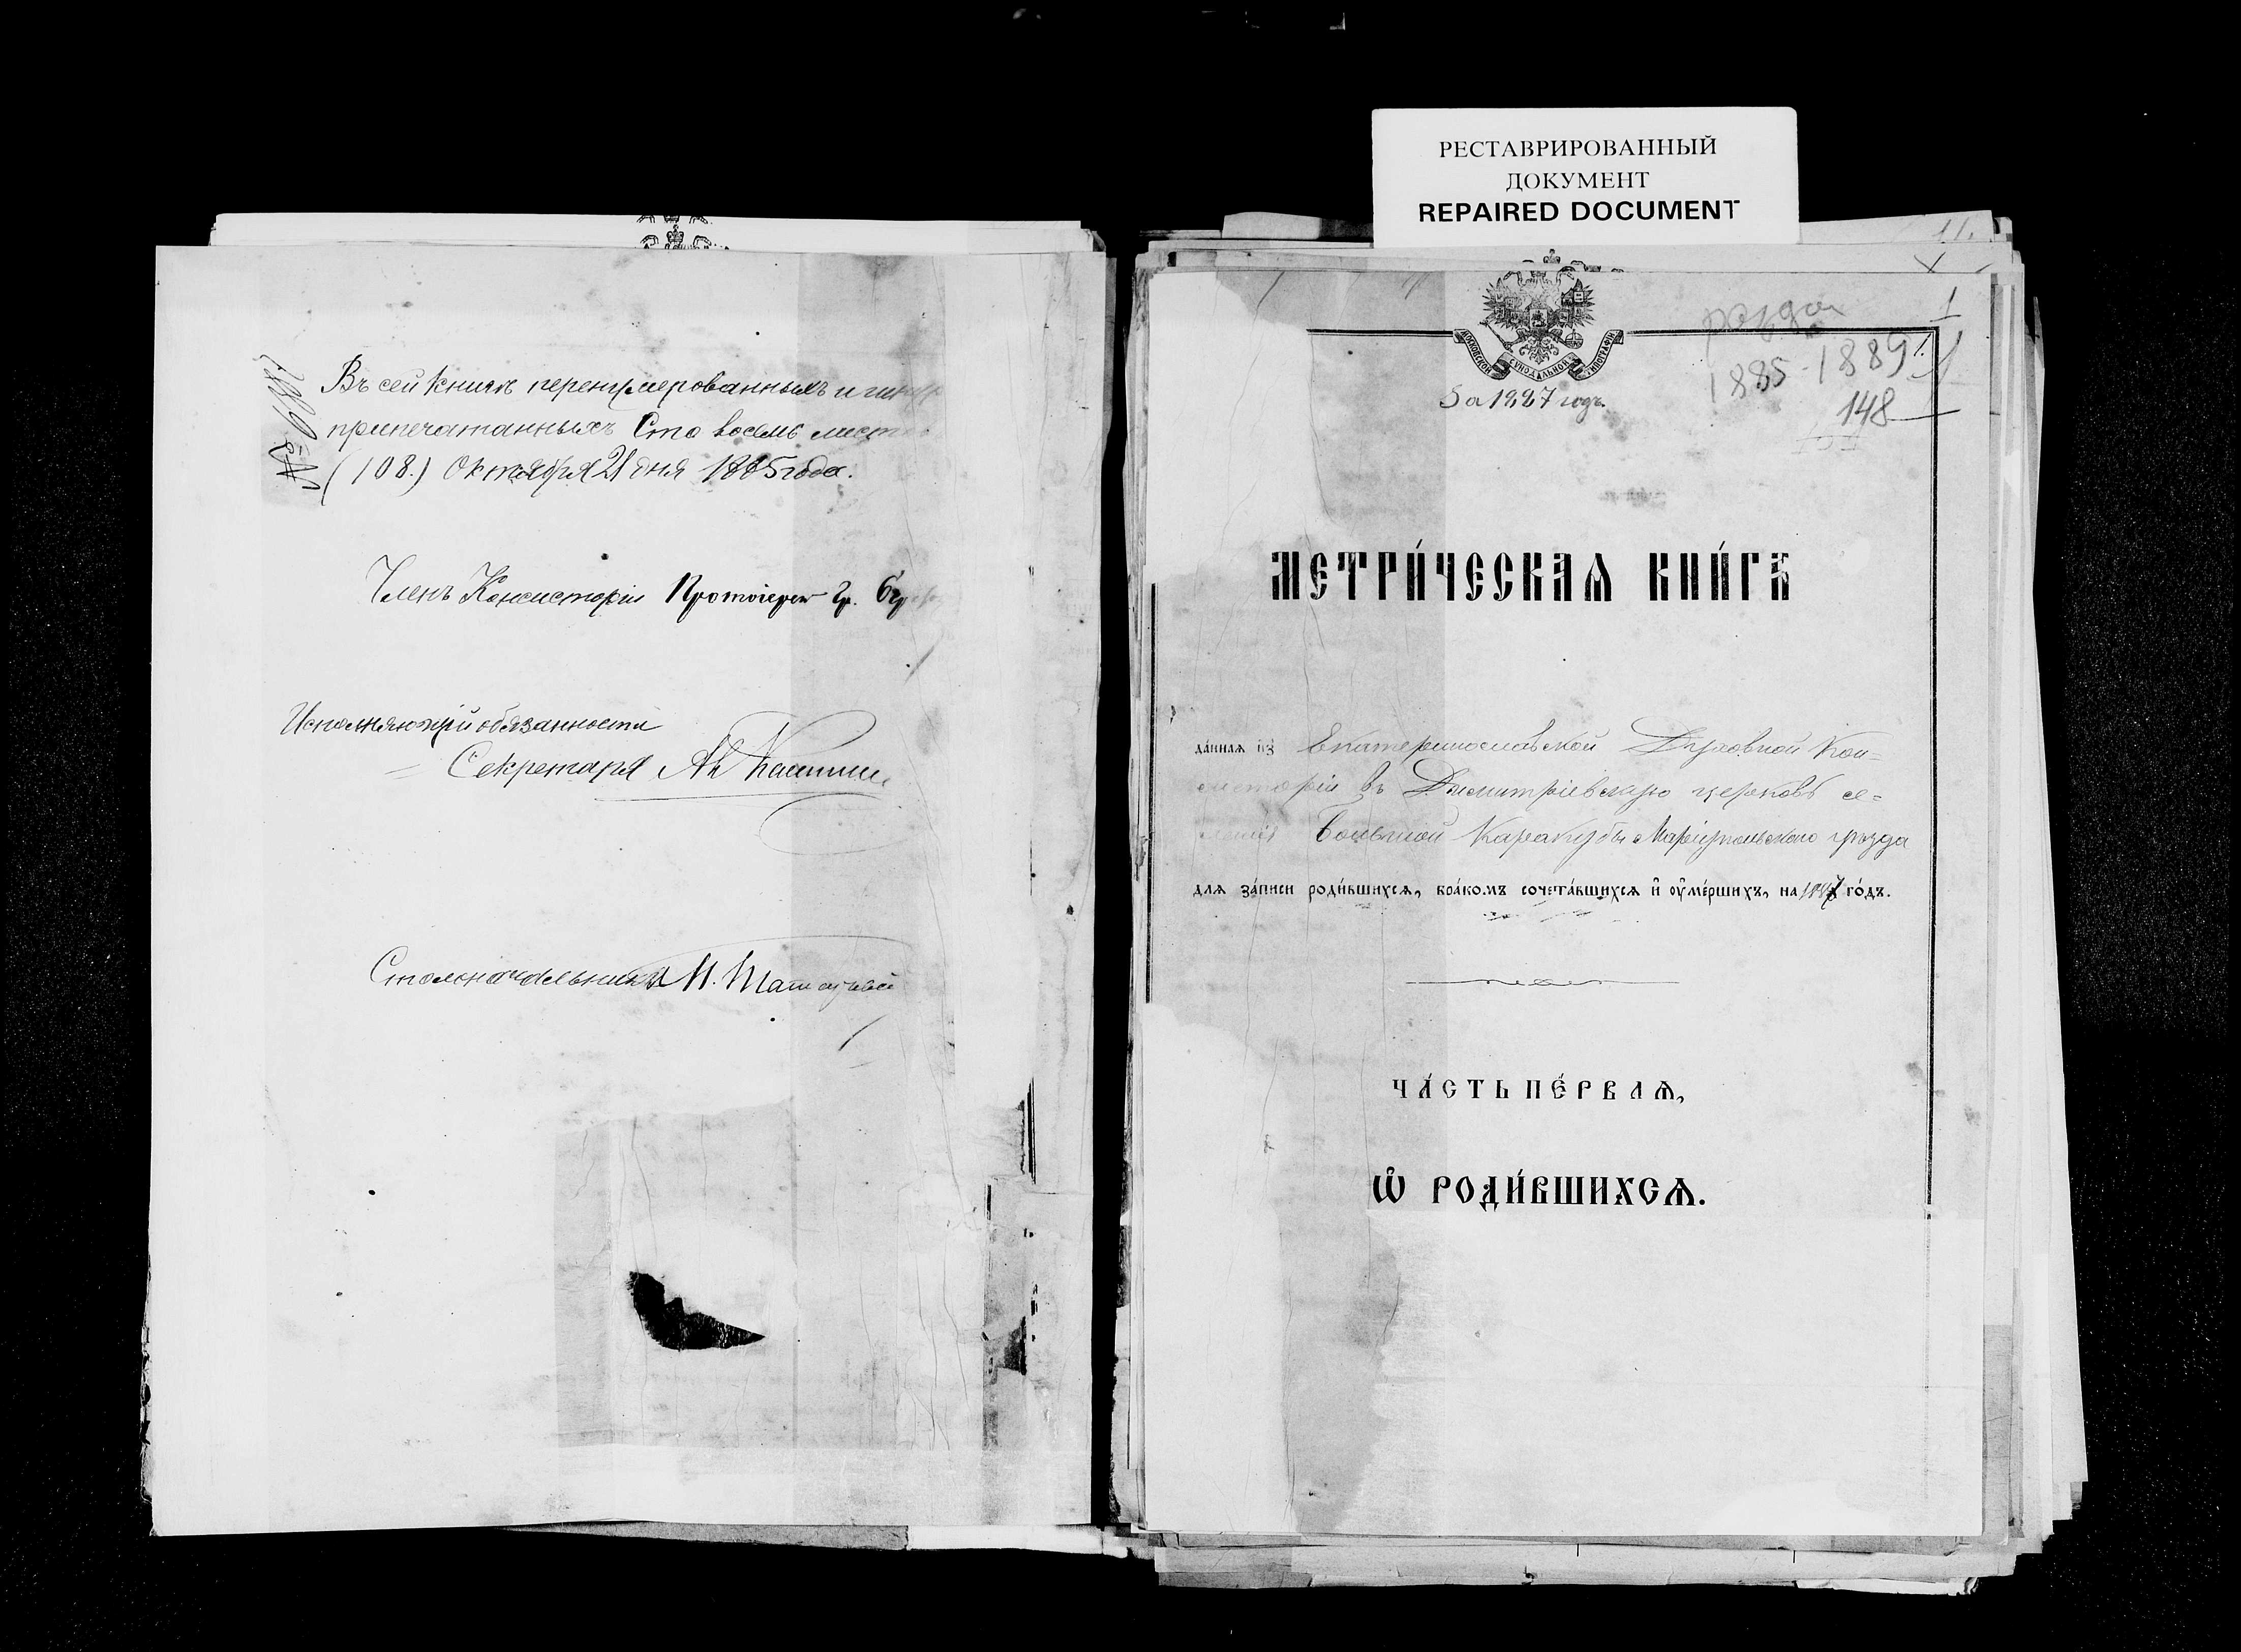 Въ сей книгѣ перенумерованныхъ и
припечатанныхъ Сто восемь листовъ
(108.) Октября 21 дня 1885 года.
Членъ Консисторіи Протоіерей Гр.
Исполняющій обязанности
Секретаря
Столоначальникъ
РЕСТАВРИРОВАННЫЙ
ДОКУМЕНТ
REPAIRED DOCUMENT
11.
1
МОСКОВСКОЙ СѴНОДАЛЬНОЙ ТИПОГРАФІИ
За 1887 годъ.
1885-1889
148
МЕТРИ́ЧЕСКАѦ КНИ́ГА
да́нная из̾ Екатеринославской Духовной Кон=
систоріи въ Димитріевскую церковь се=
ленія Большой Каракубы Маріупольскаго уѣзда
для за́писи роди́вшихсѧ, бра́комъ сочета́вшихсѧ и҆ ᲂу҆ме́ршихъ, на 1887 го́дъ.
ЧА́СТЬ ПЕ́РВАѦ,
Ѡ҆ РОДИ́ВШИХСѦ.